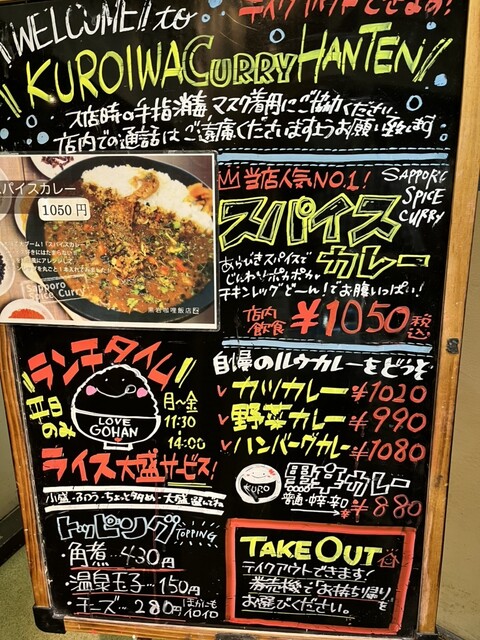 テイクアウトできます!
WELCOME! to
KUROIWA CURRY HANTEN
入店時の手指消毒 マスク着用にご協力ください
店内での通話はご遠慮くださいますようお願い致します
スパイスカレー
1050円
Sapporo
Spice Curry
黒岩咖哩飯店
当店人気NO.1!
SAPPORO
SPICE
CURRY
スパイス
カレー
あらびきスパイスで
じんわりポカポカ
チキンレッグどーん!でお腹いっぱい!
店内
飲食 ¥1050 税込
ランチタイム
平日
のみ
LOVE
GOHAN
月〜金
11:30
14:00
ライス大盛サービス!
小盛・ふつう・ちょっと多め・大盛 選んでね
トッピング TOPPING
・角煮…430円
・温泉玉子…150円
・チーズ…280円 ほかにもイロイロ
自慢のルウカレーをどうぞ
カツカレー ¥1020
野菜カレー ¥990
ハンバーグカレー ¥1080
KURO
カレー
¥880
TAKE OUT
テイクアウトできます!
券売機で「お持ち帰り」を
お選びください。